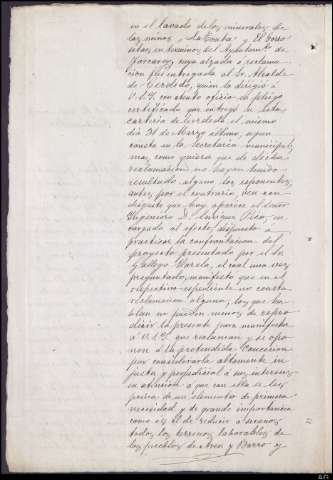 en el lavado de los minerales de
las minas "La Conta" y "El Goros-
telas", en términos del Ayuntamto de
Forcarey, cuya alzada ó reclama-
cion fué entregada al Sr. Alcalde
de Cerdedo, quien la dirigió á
V.S.I. con atento oficio de pliego
certificado que entregó en esta
cartería de Cerdedo el mismo
dia 31 de Marzo último, segun
consta en la Secretaría municipal;
mas, como quiera que de dicha
reclamacion no hayan tenido
resultado alguno los esponentes,
antes, por el contrario, ven con
disgusto que hoy aparece el señor
Ingeniero D. Enrique Pico, en-
cargado al efecto, dispuesto á
practicar la confrontacion del
proyecto presentado por el Sr.
Gallego Varela, el cual una vez
preguntado, manifestó que en el
respectivo espediente no consta
reclamacion alguna, los que ha-
blan no pueden menos de repro-
ducir la presente para manifestar
á V.S.I. que reclaman y se opo-
nen á la pretendida concesion
por considerarla altamente in-
justa y perjudicial á sus intereses
en atencion á que con ella se les
priva de un elemento de primera
necesidad y de grande importancia
como es el de reducir á secano
todos los terrenos laborables de
los pueblos de Arén y Barro y